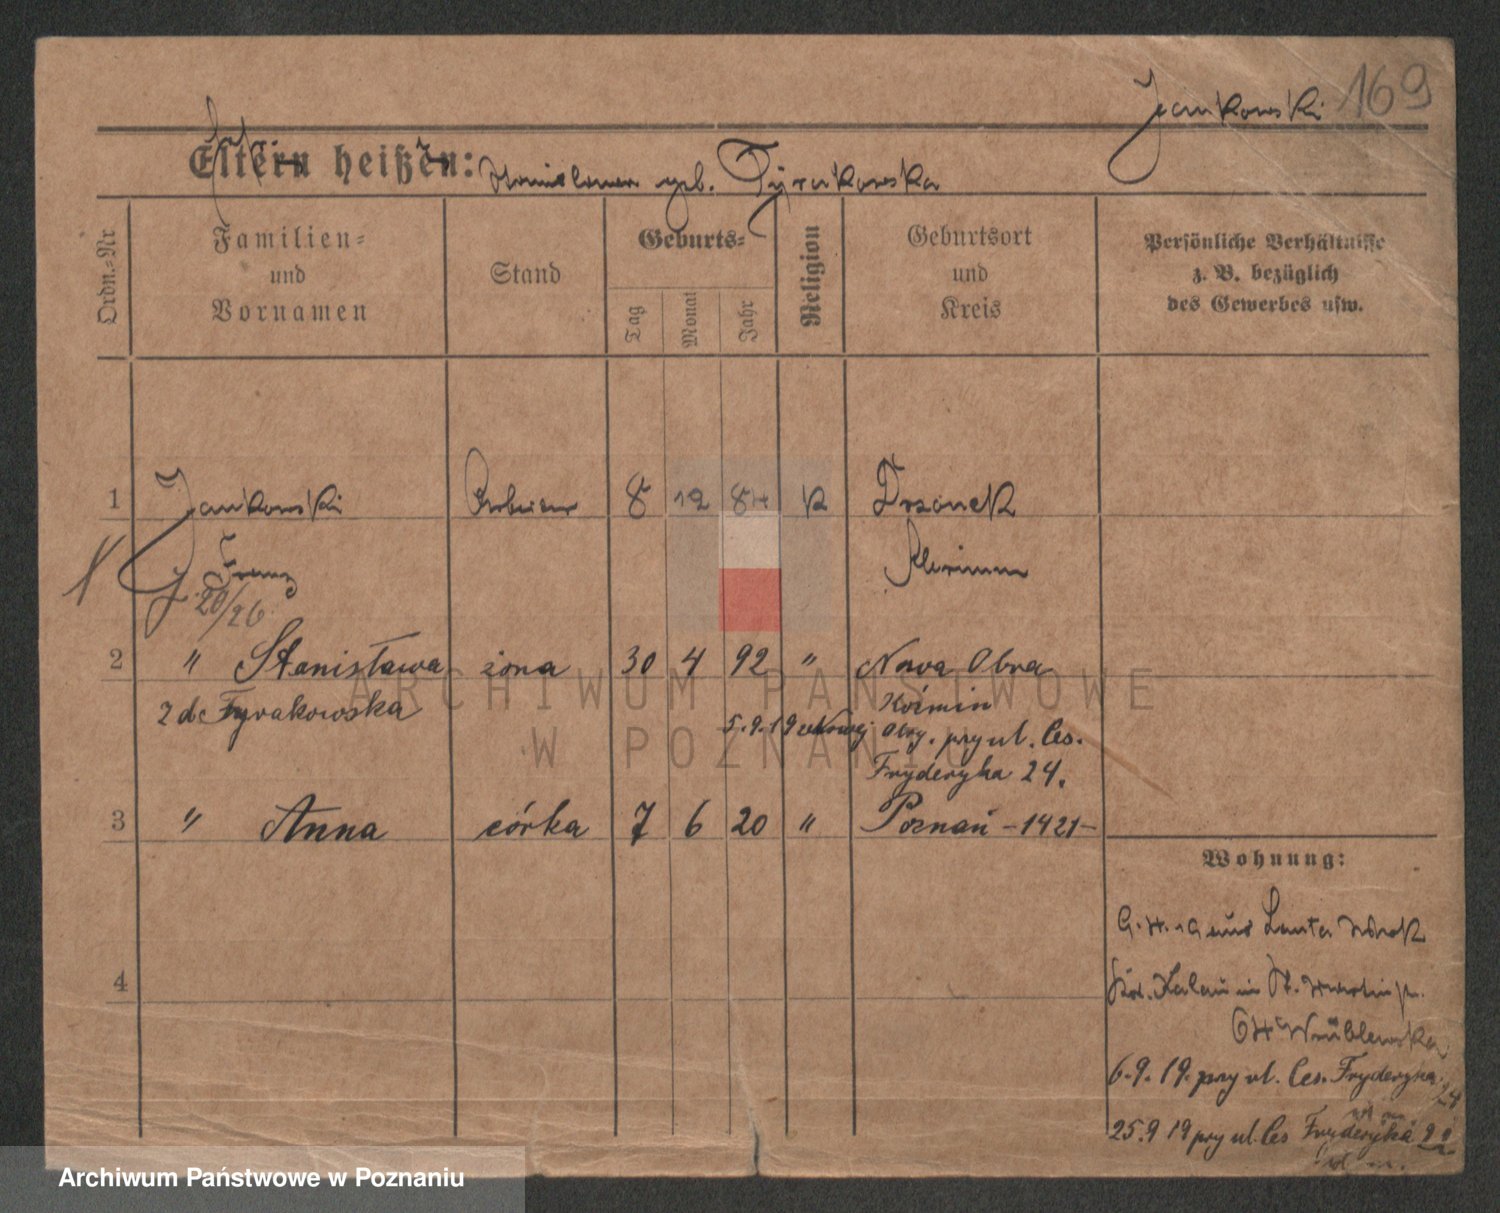 Jankowski 169
Eltern heißen: geb. Fyrakowska
Ordn.-Nr
Familien-
und
Vornamen
Stand
Geburts-
Tag
Monat
Jahr
Religion
Geburtsort
und
Kreis
Persönliche Verhältnisse
z. B. bezüglich
des Gewerbes usw.
1 Jankowski Arbeiter 8 12 84 K Dronek
Franz
20/26
2 " Stanisława żona 30 4 92 " Nowa Obra
z d. Fyrakowska Koźmin
5.9.19 z Nowej Obry. przy ul. Ces.
Fryderyka 24.
3 " Anna córka 7 6 20 " Poznań -1421-
Wohnung:
4
Wrüblewska
6.9.19. przy ul. Ces. Fryderyka 24
25.9 19 przy ul. Ces Fryderyka
ARCHIWUM PAŃSTWOWE
W POZNANIU
Archiwum Państwowe w Poznaniu